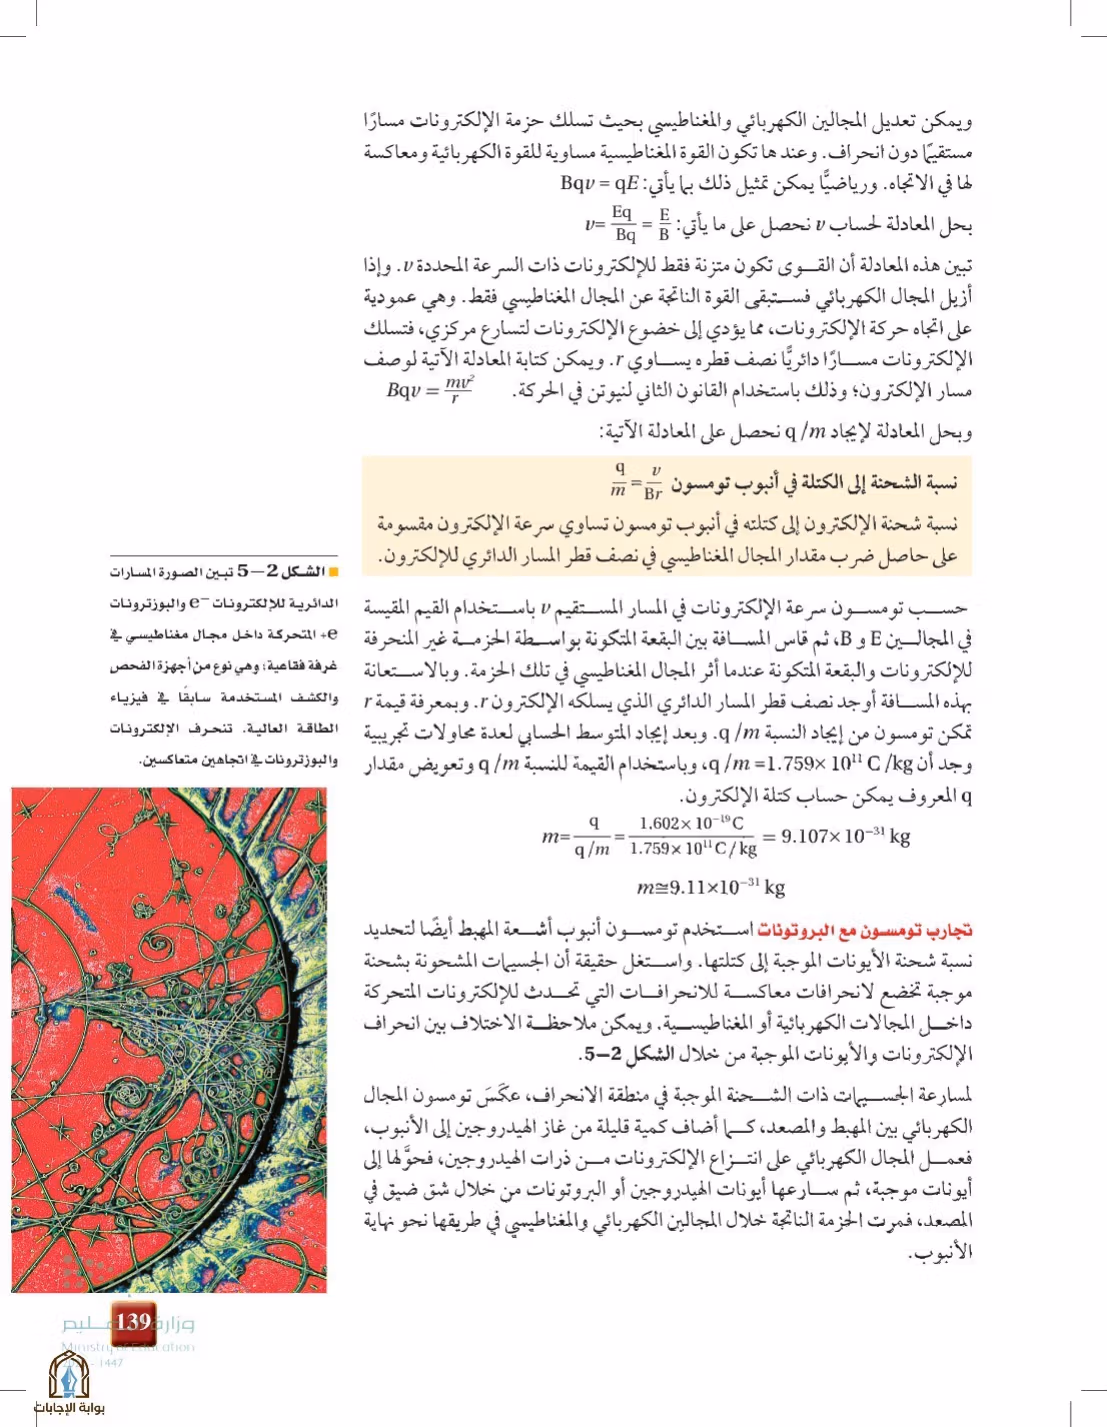 ويمكن تعديل المجالين الكهربائي والمغناطيسي بحيث تسلك حزمة الإلكترونات مسارًا
مستقيمًا دون انحراف. وعندها تكون القوة المغناطيسية مساوية للقوة الكهربائية ومعاكسة
لها في الاتجاه. ورياضيًّا يمكن تمثيل ذلك بما يأتي: Bqv = qE
بحل المعادلة لحساب v نحصل على ما يأتي: v= Eq/Bq = E/B
تبين هذه المعادلة أن القوى تكون متزنة فقط للإلكترونات ذات السرعة المحددة v. وإذا
أزيل المجال الكهربائي فستبقى القوة الناتجة عن المجال المغناطيسي فقط. وهي عمودية
على اتجاه حركة الإلكترونات، مما يؤدي إلى خضوع الإلكترونات لتسارع مركزي، فتسلك
الإلكترونات مسارًا دائريًّا نصف قطره يساوي r. ويمكن كتابة المعادلة الآتية لوصف
مسار الإلكترون؛ وذلك باستخدام القانون الثاني لنيوتن في الحركة. Bqv = mv²/r
وبحل المعادلة لإيجاد q /m نحصل على المعادلة الآتية:
نسبة الشحنة إلى الكتلة في أنبوب تومسون q/m = v/Br
نسبة شحنة الإلكترون إلى كتلته في أنبوب تومسون تساوي سرعة الإلكترون مقسومة
على حاصل ضرب مقدار المجال المغناطيسي في نصف قطر المسار الدائري للإلكترون.
حسب تومسون سرعة الإلكترونات في المسار المستقيم v باستخدام القيم المقيسة
في المجالين E و B، ثم قاس المسافة بين البقعة المتكونة بواسطة الحزمة غير المنحرفة
للإلكترونات والبقعة المتكونة عندما أثر المجال المغناطيسي في تلك الحزمة. وبالاستعانة
بهذه المسافة أوجد نصف قطر المسار الدائري الذي يسلكه الإلكترون r. وبمعرفة قيمة r
تمكن تومسون من إيجاد النسبة q /m. وبعد إيجاد المتوسط الحسابي لعدة محاولات تجريبية
وجد أن q /m =1.759× 10¹¹ C /kg، وباستخدام القيمة للنسبة q /m وتعويض مقدار
q المعروف يمكن حساب كتلة الإلكترون.
m= q/(q/m) = 1.602× 10⁻¹⁹C / 1.759× 10¹¹C/ kg = 9.107× 10⁻³¹ kg
m≅9.11×10⁻³¹ kg
تجارب تومسون مع البروتونات استخدم تومسون أنبوب أشعة المهبط أيضًا لتحديد
نسبة شحنة الأيونات الموجبة إلى كتلتها. واستغل حقيقة أن الجسيمات المشحونة بشحنة
موجبة تخضع لانحرافات معاكسة للانحرافات التي تحدث للإلكترونات المتحركة
داخل المجالات الكهربائية أو المغناطيسية. ويمكن ملاحظة الاختلاف بين انحراف
الإلكترونات والأيونات الموجبة من خلال الشكل 2-5.
لمسارعة الجسيمات ذات الشحنة الموجبة في منطقة الانحراف، عكَسَ تومسون المجال
الكهربائي بين المهبط والمصعد، كما أضاف كمية قليلة من غاز الهيدروجين إلى الأنبوب،
فعمل المجال الكهربائي على انتزاع الإلكترونات من ذرات الهيدروجين، فحوَّلها إلى
أيونات موجبة، ثم سارعها أيونات الهيدروجين أو البروتونات من خلال شق ضيق في
المصعد، فمرت الحزمة الناتجة خلال المجالين الكهربائي والمغناطيسي في طريقها نحو نهاية
الأنبوب.
■ الشكل 2-5 تبين الصورة المسارات
الدائرية للإلكترونات e⁻ والبوزترونات
e+ المتحركة داخل مجال مغناطيسي في
غرفة فقاعية؛ وهي نوع من أجهزة الفحص
والكشف المستخدمة سابقًا في فيزياء
الطاقة العالية. تنحرف الإلكترونات
والبوزترونات في اتجاهين متعاكسين.
139
Ministry of Education
1447
بوابة الإجابات